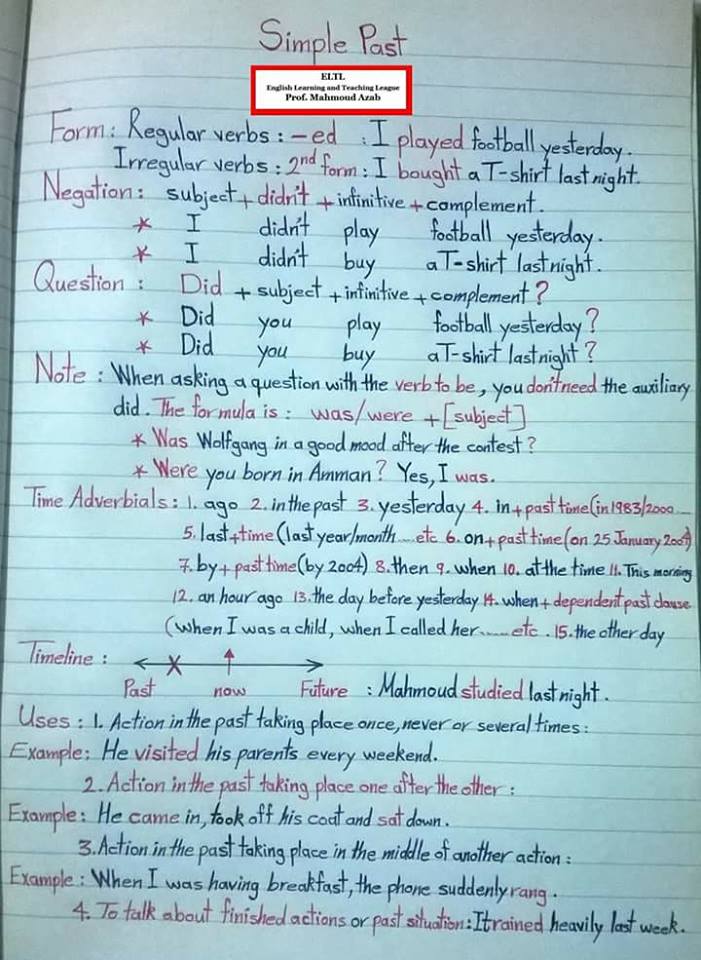 Simple Past
ELTL
English Learning and Teaching League
Prof. Mahmoud Azab
Form: Regular verbs: -ed : I played football yesterday.
Irregular verbs: 2nd form: I bought a T-shirt last night.
Negation: subject + didn't + infinitive + complement.
* I didn't play football yesterday.
* I didn't buy a T-shirt last night.
Question: Did + subject + infinitive + complement?
* Did you play football yesterday?
* Did you buy a T-shirt last night?
Note: When asking a question with the verb to be, you don't need the auxiliary
did. The formula is: was/were + [subject]
* Was Wolfgang in a good mood after the contest?
* Were you born in Amman? Yes, I was.
Time Adverbials: 1. ago 2. in the past 3. yesterday 4. in + past time (in 1983/2000 ....
5. last + time (last year/month .... etc 6. on + past time (on 25 January 2009)
7. by + past time (by 2004) 8. then 9. when 10. at the time 11. This morning
12. an hour ago 13. the day before yesterday 14. when + dependent past clause
(when I was a child, when I called her ...... etc. 15. the other day
Timeline:
Past now Future : Mahmoud studied last night.
Uses: 1. Action in the past taking place once, never or several times:
Example: He visited his parents every weekend.
2. Action in the past taking place one after the other:
Example: He came in, took off his coat and sat down.
3. Action in the past taking place in the middle of another action:
Example: When I was having breakfast, the phone suddenly rang.
4. To talk about finished actions or past situation: It rained heavily last week.